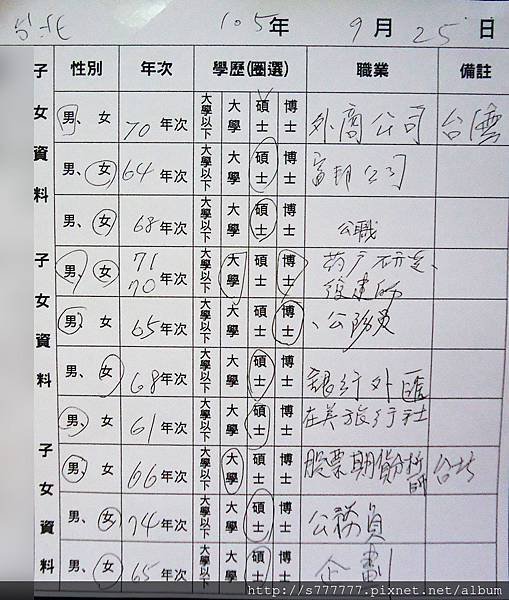 台北 105年 9月25日
子女資料 性別 年次 學歷(圈選) 職業 備註
男、女 70年次 大學以下 大學 碩士 博士 外商公司 台灣
男、女 64年次 大學以下 大學 碩士 博士 富邦公司
男、女 68年次 大學以下 大學 碩士 博士 公職
子女資料
男、女 71 70年次 大學以下 大學 碩士 博士
男、女 65年次 大學以下 大學 碩士 博士 、公務員
男、女 68年次 大學以下 大學 碩士 博士 銀行外匯
男、女 61年次 大學以下 大學 碩士 博士 在美旅行社
子女資料
男、女 66年次 大學以下 大學 碩士 博士 股票期貨分析師 台北
男、女 74年次 大學以下 大學 碩士 博士 公務員
男、女 65年次 大學以下 大學 碩士 博士 企劃
http://s777777.pixnet.net/album